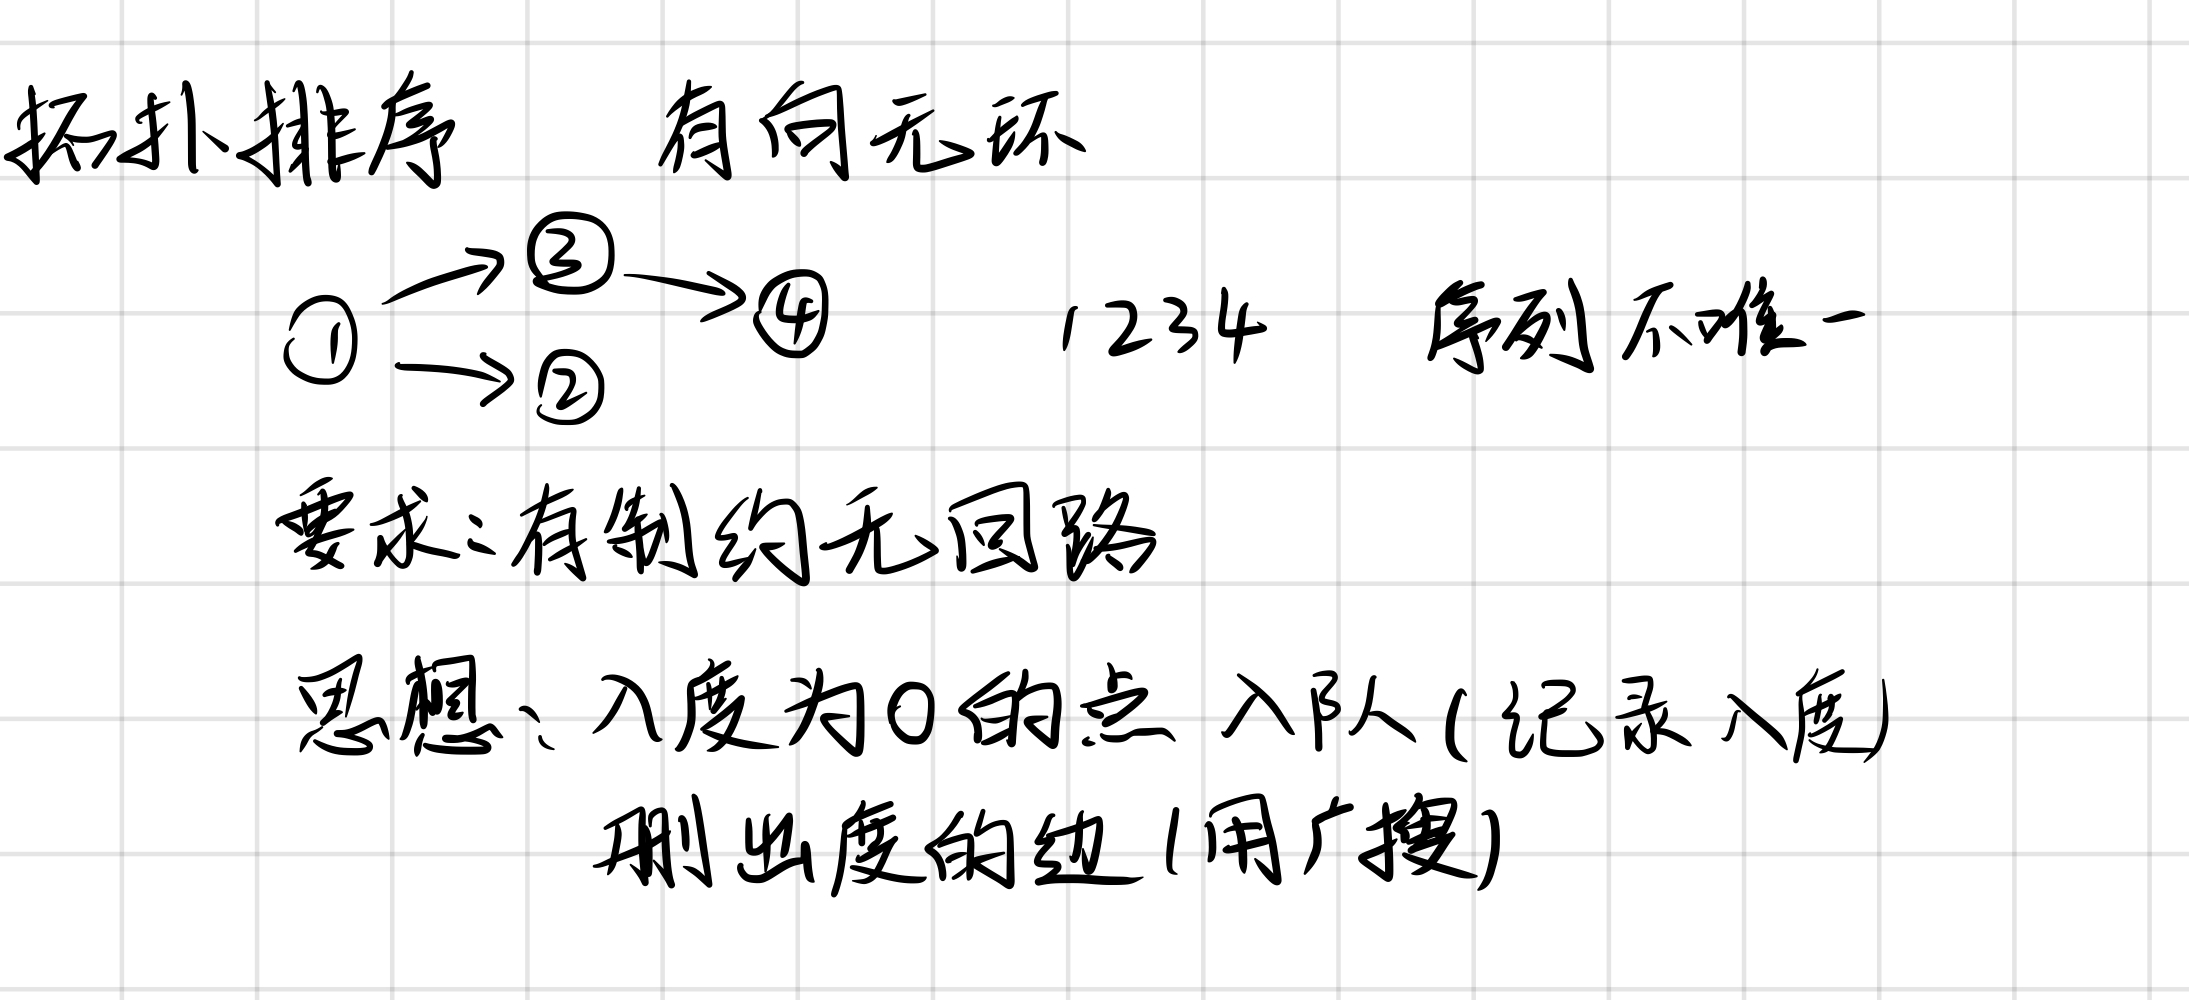 拓扑排序 有向无环
① ③ ④ ② 1234 序列不唯一
要求:有制约无回路
思想:入度为0的点入队(记录入度)
删出度的边(用广搜)